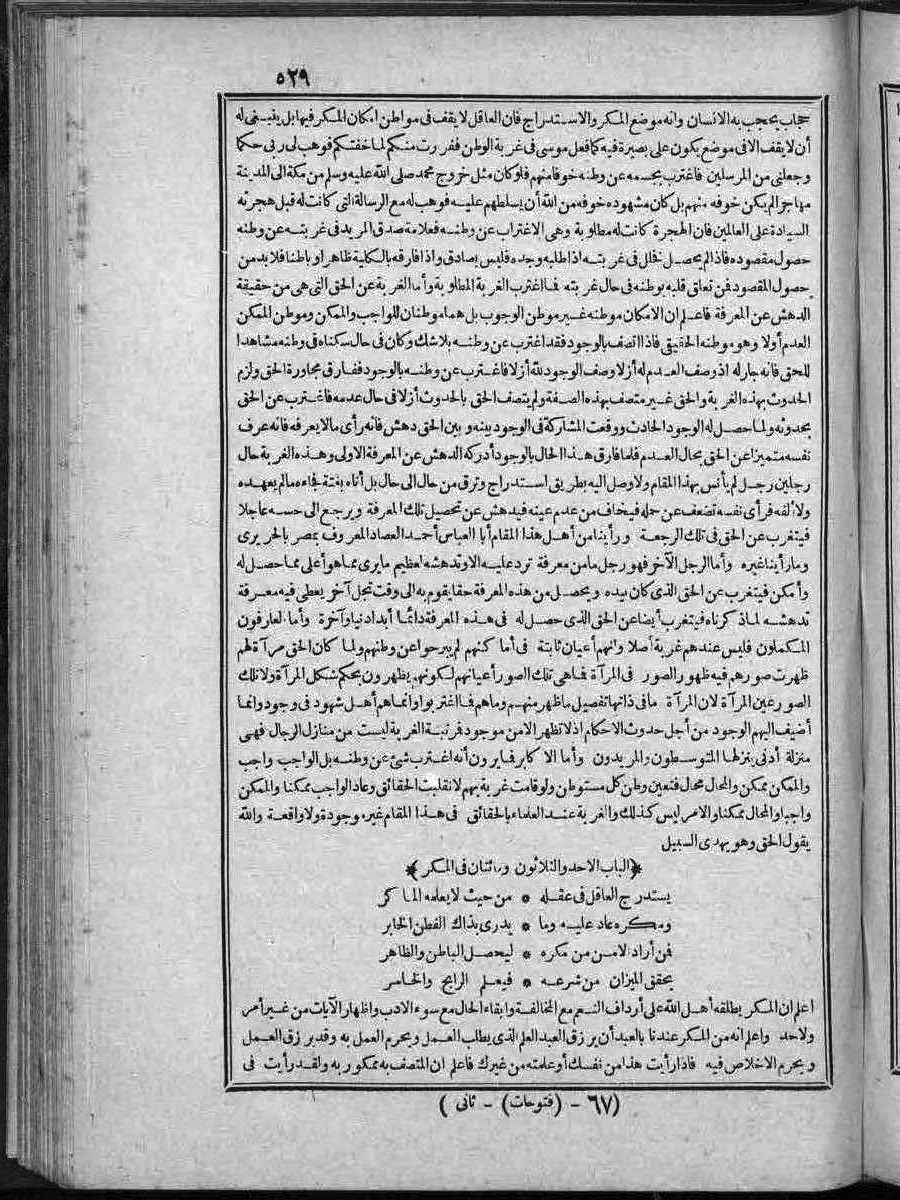 ٥٢٩
حجاب يحجب به الانسان وانه موضع المكر والاستدراج فان العاقل لا يقف فى مواطن امكان المكر فيها بل ينبغى له
أن لا يقف الا فى موضع يكون على بصيرة فيه كما فعل موسى فى غربة الوطن ففررت منكم لما خفتكم فوهب لى ربى حكما
وجعلنى من المرسلين فاغترب بجسمه عن وطنه خوفا منهم فلو كان مثل خروج محمد صلى الله عليه وسلم من مكة الى المدينة
مهاجرا لم يكن خوفه منهم بل كان مشهوده خوفه من الله أن يسلطهم عليه فوهب له مع الرسالة التى كانت له قبل هجرته
السيادة على العالمين فان الهجرة كانت له مطلوبة وهى الاغتراب عن وطنه فعلامة صدق المريد فى غربته عن وطنه
حصول مقصوده فاذا لم يحصل فلخلل فى غربته اذ اطلبه وجده فليس بصادق واذا فارقه بالكلية ظاهرا وباطنا فلا بد من
حصول المقصود فمن تعلق قلبه بوطنه فى حال غربته فما اغترب الغربة المطلوبة وأما الغربة عن الحق التى هى من حقيقة
الدهش عن المعرفة فاعلم ان الامكان موطنه غير موطن الوجوب بل هما موطنان للواجب والممكن وموطن الممكن
العدم أولا وهو موطنه الحقيقى فاذا اتصف بالوجود فقد اغترب عن وطنه بلا شك وكان فى حال سكناه فى وطنه مشاهدا
للحق فانه جار له اذ وصف العدم له أزلا وصف الوجود لله أزلا فاغترب عن وطنه بالوجود ففارق مجاورة الحق ولزم
الحدوث بهذه الغربة والحق غير متصف بهذه الصفة ولم يتصف الحق بالحدوث أزلا فى حال عدمه فاغترب عن الحق
بحدوثه ولما حصل له الوجود الحادث ووقعت المشاركة فى الوجود بينه وبين الحق دهش فانه رأى مالا يعرفه فانه عرف
نفسه متميزا عن الحق بحال العدم فلما فارق هذا الحال بالوجود أدركه الدهش عن المعرفة الاولى وهذه الغربة حال
رجلين رجل لم يأنس بهذا المقام ولا وصل اليه بطريق استدراج وترق من حال الى حال بل أتاه بغتة فجاءه مالم يعهده
ولا ألفه فرأى نفسه تضعف عن حمله فيخاف من عدم عينه فيدهش عن تحصيل تلك المعرفة ويرجع الى حسه عاجلا
فيتغرب عن الحق فى تلك الرجعة ورأينا من أهل هذا المقام أبا العباس أحمد العصاد المعروف بمصر بالحريرى
وما رأينا غيره وأما الرجل الآخر فهو رجل ما من معرفة ترد عليه الا وتدهشه لعظيم ما يرى مما هو أعلى مما حصل له
وأمكن فيتغرب عن الحق الذى كان بيده ويحصل من هذه المعرفة حقا يقوم به الى وقت تجل آخر يعطى فيه معرفة
تدهشه لما ذكرناه فيتغرب أيضا عن الحق الذى حصل له فى هذه المعرفة دائما أبدا دنيا وآخرة وأما العارفون
المكملون فليس عندهم غربة أصلا وانهم أعيان ثابتة فى أماكنهم لم يبرحوا عن وطنهم ولما كان الحق مرآة لهم
ظهرت صورهم فيه ظهور الصور فى المرآة فما هى تلك الصور أعيانهم لكونهم يظهرون بحكم شكل المرآة ولا تلك
الصور عين المرآة لان المرآة ما فى ذاتها تفصيل ما ظهر منهم وما هم فما اغتربوا وانما هم أهل شهود فى وجود وانما
أضيف اليهم الوجود من أجل حدوث الاحكام اذ لا تظهر الا من موجود فرتبة الغربة ليست من منازل الرجال فهى
منزلة أدنى ينزلها المتوسطون والمريدون وأما الاكابر فما يرون أنه اغترب شئ عن وطنه بل الواجب واجب
والممكن ممكن والمحال محال فتعين وطن كل مستوطن ولو قامت غربة بهم لانقلبت الحقائق وعاد الواجب ممكنا والممكن
واجبا والمحال ممكنا والامر ليس كذلك والغربة عند العلماء بالحقائق فى هذا المقام غير موجودة ولا واقعة والله
يقول الحق وهو يهدى السبيل
﴿الباب الاحد والثلاثون ومائتان فى المكر﴾
يستدرج العاقل فى عقله * من حيث لا يعلمه الماكر
ومكره عاد عليه وما * يدرى بذاك الفطن الخابر
فمن أراد الامن من مكره * ليحصل الباطن والظاهر
يحقق الميزان من شرعه * فيعلم الرابح والخاسر
اعلم ان المكر يطلقه أهل الله على أرداف النعم مع المخالفة وابقاء الحال مع سوء الادب واظهار الآيات من غير أمر
ولا حد واعلم انه من المكر عندنا بالعبد أن يرزق العبد العلم الذى يطلب العمل ويحرم العمل به وقد يرزق العمل
ويحرم الاخلاص فيه فاذا رأيت هذا من نفسك أو علمته من غيرك فاعلم ان المتصف به ممكور به ولقد رأيت فى
(٦٧ - (فتوحات) - ثانى)